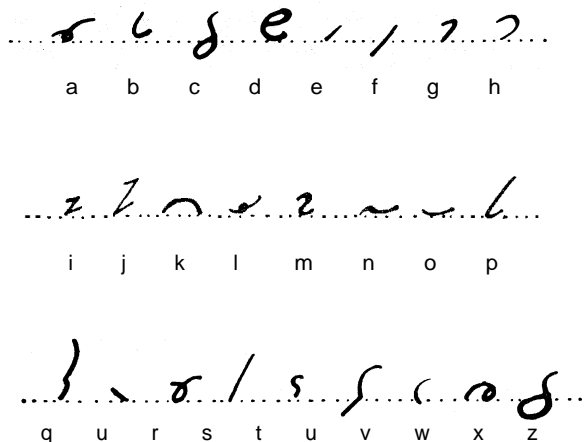 a b c d e f g h
i j k l m n o p
q u r s t u v w x z